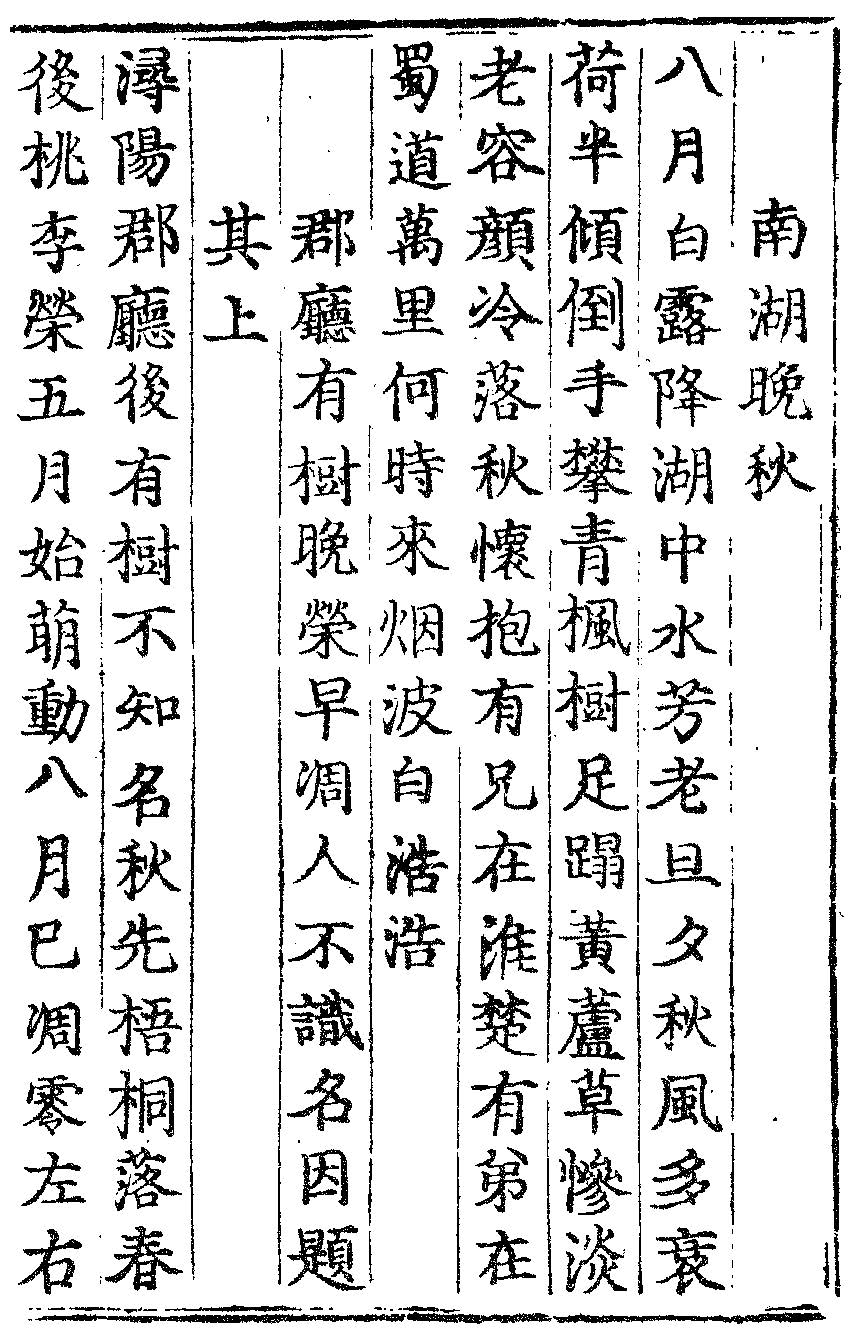 南湖晚秋
八月白露降湖中水芳老旦夕秋風多衰
荷半傾倒手攀青楓樹足蹋黃蘆草慘淡
老容顏冷落秋懷抱有兄在淮楚有弟在
蜀道萬里何時來烟波白浩浩
郡廳有樹晚榮早凋人不識名因題
其上
潯陽郡廳後有樹不知名秋先梧桐落春
後桃李榮五月始萌動八月已凋零左右